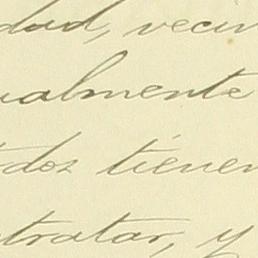 dad, vecin
ualmente
dos tienen
tratar, y